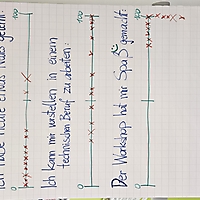 Ich habe heute etwas Neues gelernt:
0 100
Ich kann mir vorstellen in einem
technischen Beruf zu arbeiten:
0 100
Der Workshop hat mir Spaß gemacht:
0 100